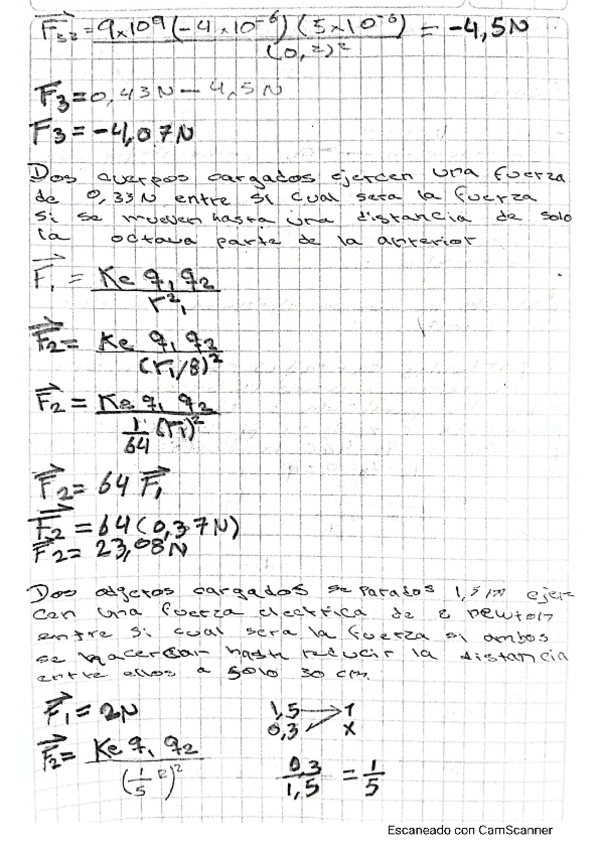 F32 = 9x109 (-4x10-6) (5x10-6) = -4,5N
(0,2)2
F3 = 0,43N - 4,5N
F3 = -4,07N
Dos cuerpos cargados ejercen una fuerza
de 0,33N entre si cual sera la fuerza
si se mueven hasta una distancia de solo
la octava parte de la anterior
F1 = Ke q1 q2
r21
F2 = Ke q1 q2
(r1/8)2
F2 = Ke q1 q2
1/64 (r1)2
F2 = 64 F1
F2 = 64 (0,37N)
F2 = 23,08N
Dos objetos cargados separados 1,5m ejer-
cen una fuerza electrica de 2 newton
entre si cual sera la fuerza si ambos
se hacercan hasta reducir la distancia
entre ellos a solo 30 cm.
F1 = 2N 1,5 → 1
0,3 x
F2 = Ke q1 q2
(1/5 )2 0,3/1,5 = 1/5
Escaneado con CamScanner